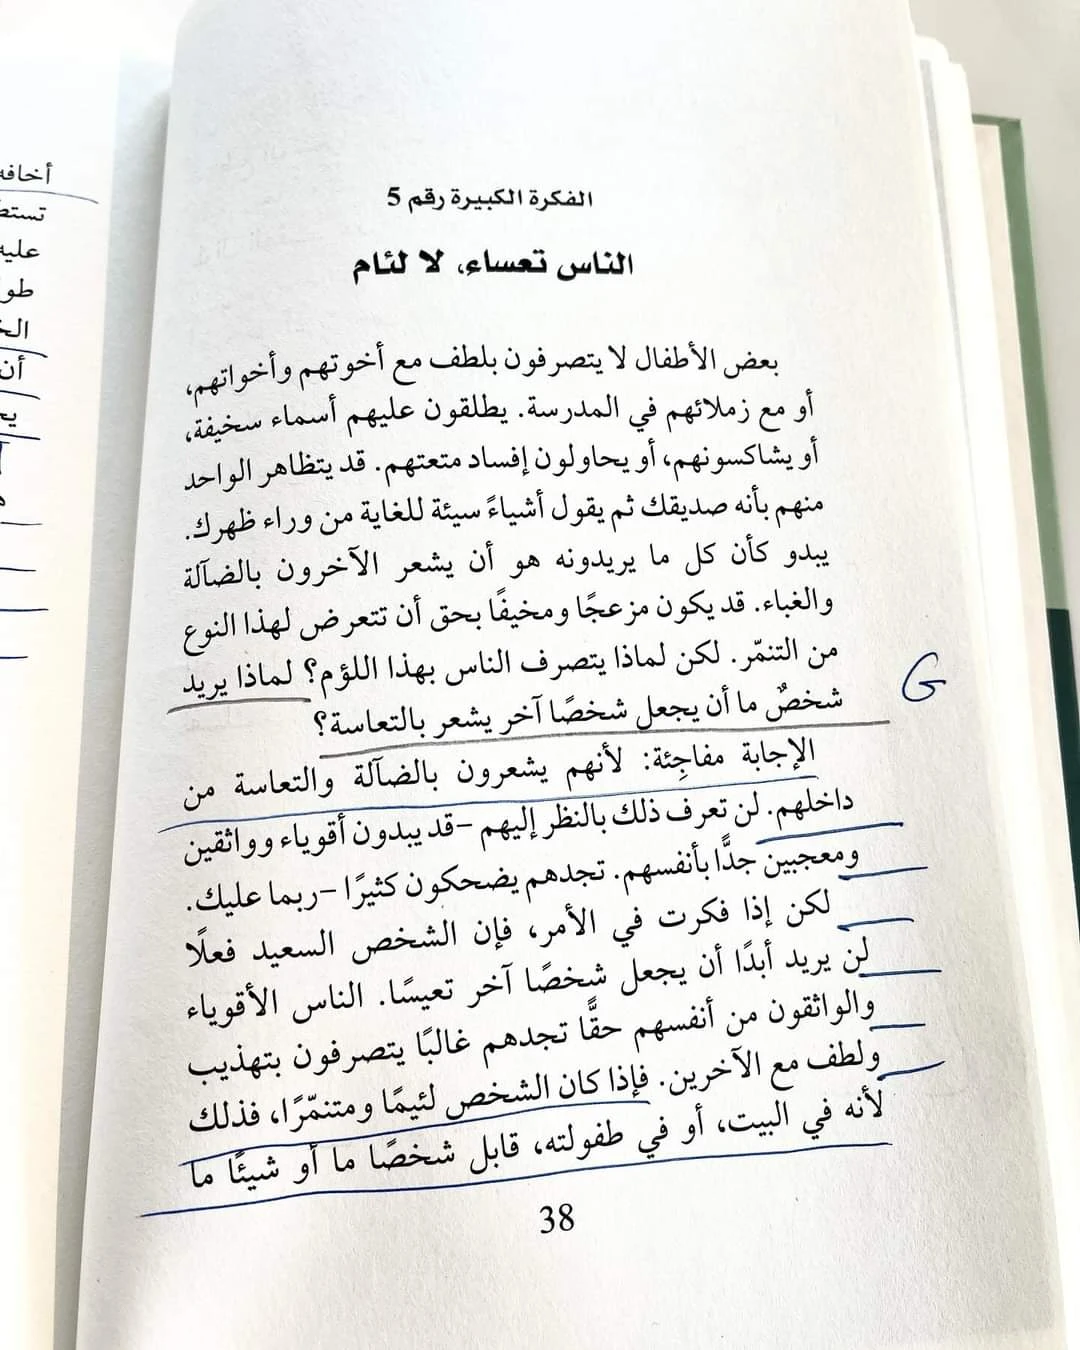 الفكرة الكبيرة رقم 5
الناس تعساء، لا لئام
بعض الأطفال لا يتصرفون بلطف مع أخوتهم وأخواتهم،
أو مع زملائهم في المدرسة. يطلقون عليهم أسماء سخيفة،
أو يشاكسونهم، أو يحاولون إفساد متعتهم. قد يتظاهر الواحد
منهم بأنه صديقك ثم يقول أشياءً سيئة للغاية من وراء ظهرك.
يبدو كأن كل ما يريدونه هو أن يشعر الآخرون بالضآلة
والغباء. قد يكون مزعجًا ومخيفًا بحق أن تتعرض لهذا النوع
من التنمّر. لكن لماذا يتصرف الناس بهذا اللؤم؟ لماذا يريد
شخصٌ ما أن يجعل شخصًا آخر يشعر بالتعاسة؟
الإجابة مفاجِئة: لأنهم يشعرون بالضآلة والتعاسة من
داخلهم. لن تعرف ذلك بالنظر إليهم –قد يبدون أقوياء وواثقين
ومعجبين جدًّا بأنفسهم. تجدهم يضحكون كثيرًا –ربما عليك.
لكن إذا فكرت في الأمر، فإن الشخص السعيد فعلًا
لن يريد أبدًا أن يجعل شخصًا آخر تعيسًا. الناس الأقوياء
والواثقون من أنفسهم حقًّا تجدهم غالبًا يتصرفون بتهذيب
ولطف مع الآخرين. فإذا كان الشخص لئيمًا ومتنمّرًا، فذلك
لأنه في البيت، أو في طفولته، قابل شخصًا ما أو شيئًا ما
38
G
أخافه
عليه
أن